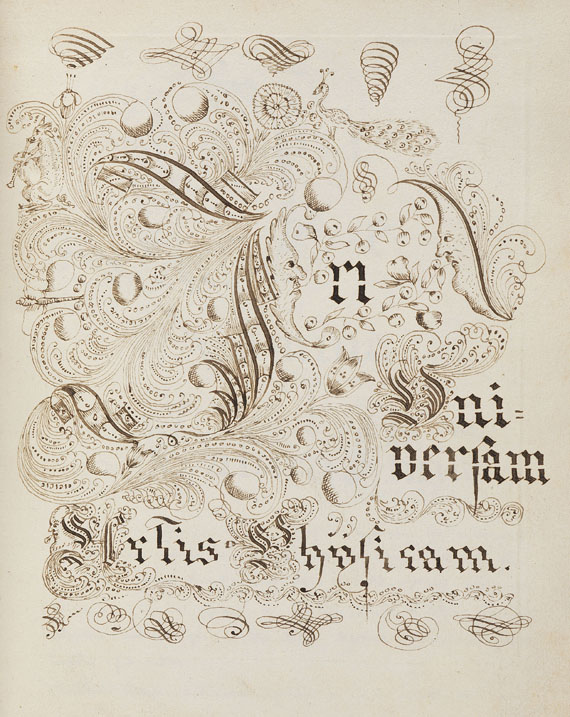 In
Vni=
verſam
Artis=Phÿſicam.